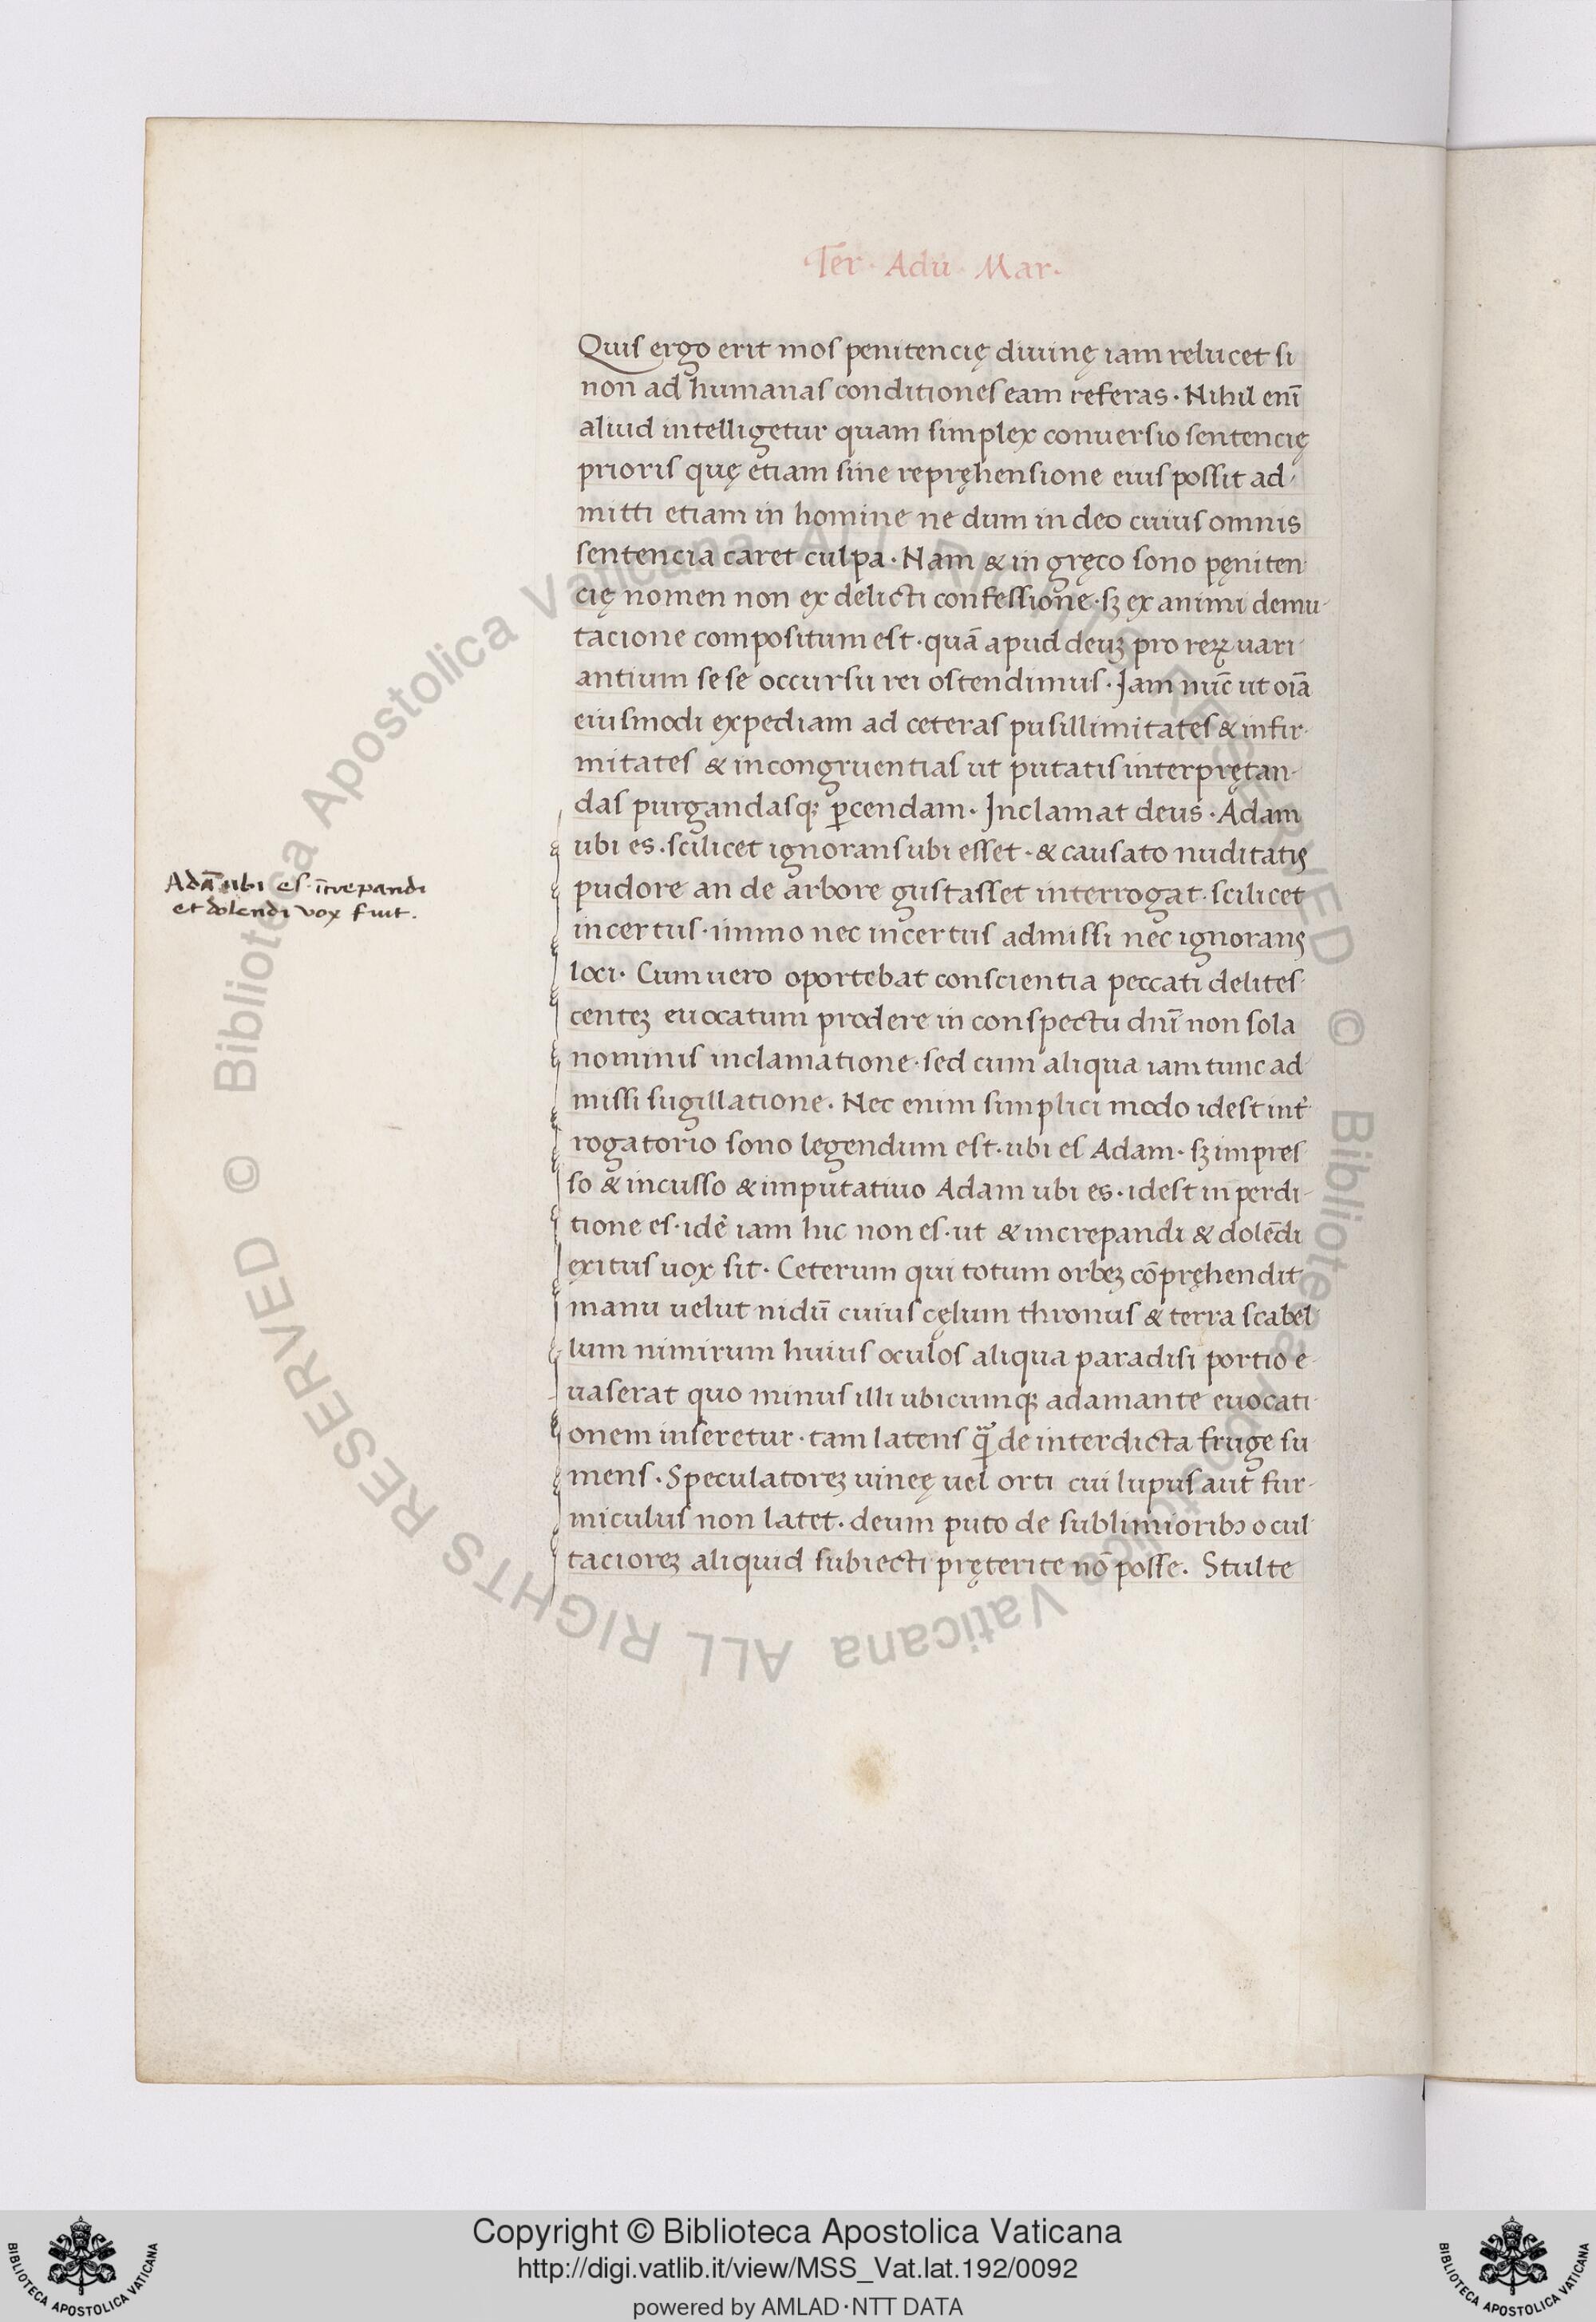 Ter · Adu · Mar ·
Quis ergo erit mos penitencię diuinę iam relucet si
non ad humanas conditiones eam referas · Nihil enı̄
aliud intelligetur quam simplex conuersio sentencię
prioris quę etiam sine repręhensione eius possit ad
mitti etiam in homine ne dum in deo cuius omnis
sentencia caret culpa · Nam & in gręco sono pęniten
cię nomen non ex delicti confessione · sꝫ ex animi demu
tacione compositum est · quā apud deuꝫ pro reꝝ uari
antium sese occursu rei ostendimus · Jam nūc ut oı̄a
eiusmodi expediam ad ceteras pusillimitates & infir
mitates & incongruentias ut putatis interprętan
das purgandasqꝫ ꝑcendam · Inclamat deus · Adam
ubi es · scilicet ignorans ubi esset · & causato nuditatis
pudore an de arbore gustasset interrogat · scilicet
incertus · immo nec incertus admissi nec ignorans
loci · Cum uero oportebat conscientia peccati delites
centeꝫ euocatum prodere in conspectu dnı̄ non sola
nominis inclamatione · sed cum aliqua iam tunc ad
missi sugillatione · Nec enim simplici modo idest int̉
rogatorio sono legendum est · ubi es Adam · sꝫ impres
so & incusso & imputatiuo Adam ubi es · idest in perdi
tione es · idē iam hic non es · ut & increpandi & dolēdi
exitus uox sit · Ceterum qui totum orbeꝫ cōpręhendit
manu uelut nidū cuius cęlum thronus & terra scabel
lum nimirum huius oculos aliqua paradisi portio e
uaserat quo minus illi ubicumqꝫ adamante euocati
onem inseretur · tam latens q̄ de interdicta fruge su
mens · Speculatoreꝫ uineę uel orti cui lupus aut fur
miculus non latet · deum puto de sublimioribꝰ ocul
tacioreꝫ aliquid subiecti pręterite nō posse · Stulte
Adā ubi es · īcrepandi
et dolendi vox fuit.
© Biblioteca Apostolica Vaticana ALL RIGHTS RESERVED © Biblioteca Apostolica Vaticana ALL RIGHTS RESERVED
Copyright © Biblioteca Apostolica Vaticana
http://digi.vatlib.it/view/MSS_Vat.lat.192/0092
powered by AMLAD·NTT DATA
BIBLIOTECA APOSTOLICA VATICANA
BIBLIOTECA APOSTOLICA VATICANA